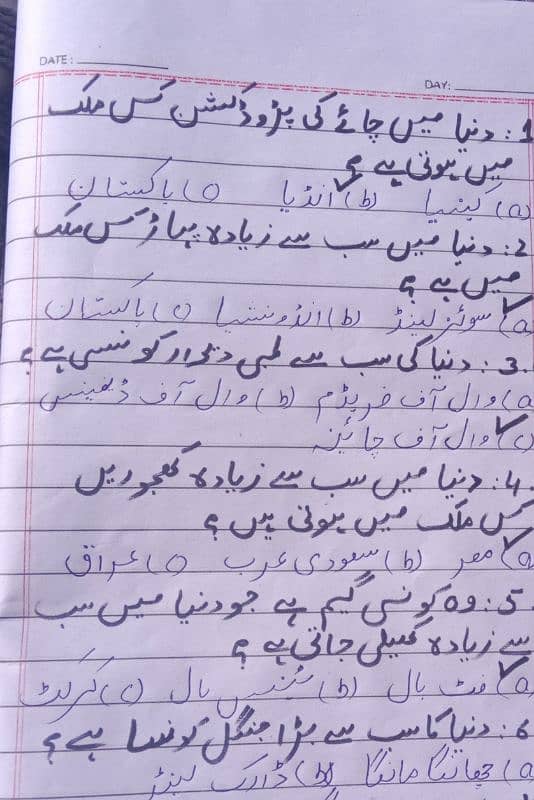 DATE:
DAY:
1: دنیا میں چائے کی پڑوڈکشن کس ملک
میں ہوتی ہے؟
(a) کینیا (b) انڈیا (c) پاکستان
2: دنیا میں سب سے زیادہ پہاڑ کس ملک
میں ہے؟
(a) سوئزلینڈ (b) انڈونیشیا (c) پاکستان
3: دنیا کی سب سے لمبی دیوار کونسی ہے؟
(a) وال آف فریڈم (b) وال آف ڈیفینس
(c) وال آف چائینہ
4: دنیا میں سب سے زیادہ کھجوریں
کس ملک میں ہوتی ہیں؟
(a) مصر (b) سعودی عرب (c) عراق
5: وہ کونسی گیم ہے جو دنیا میں سب
سے زیادہ کھیلی جاتی ہے؟
(a) فٹ بال (b) ٹینس بال (c) کرکٹ
6: دنیا کا سب سے بڑا جنگل کونسا ہے؟
(a) چھانگا مانگا (b) ڈارک لینڈ